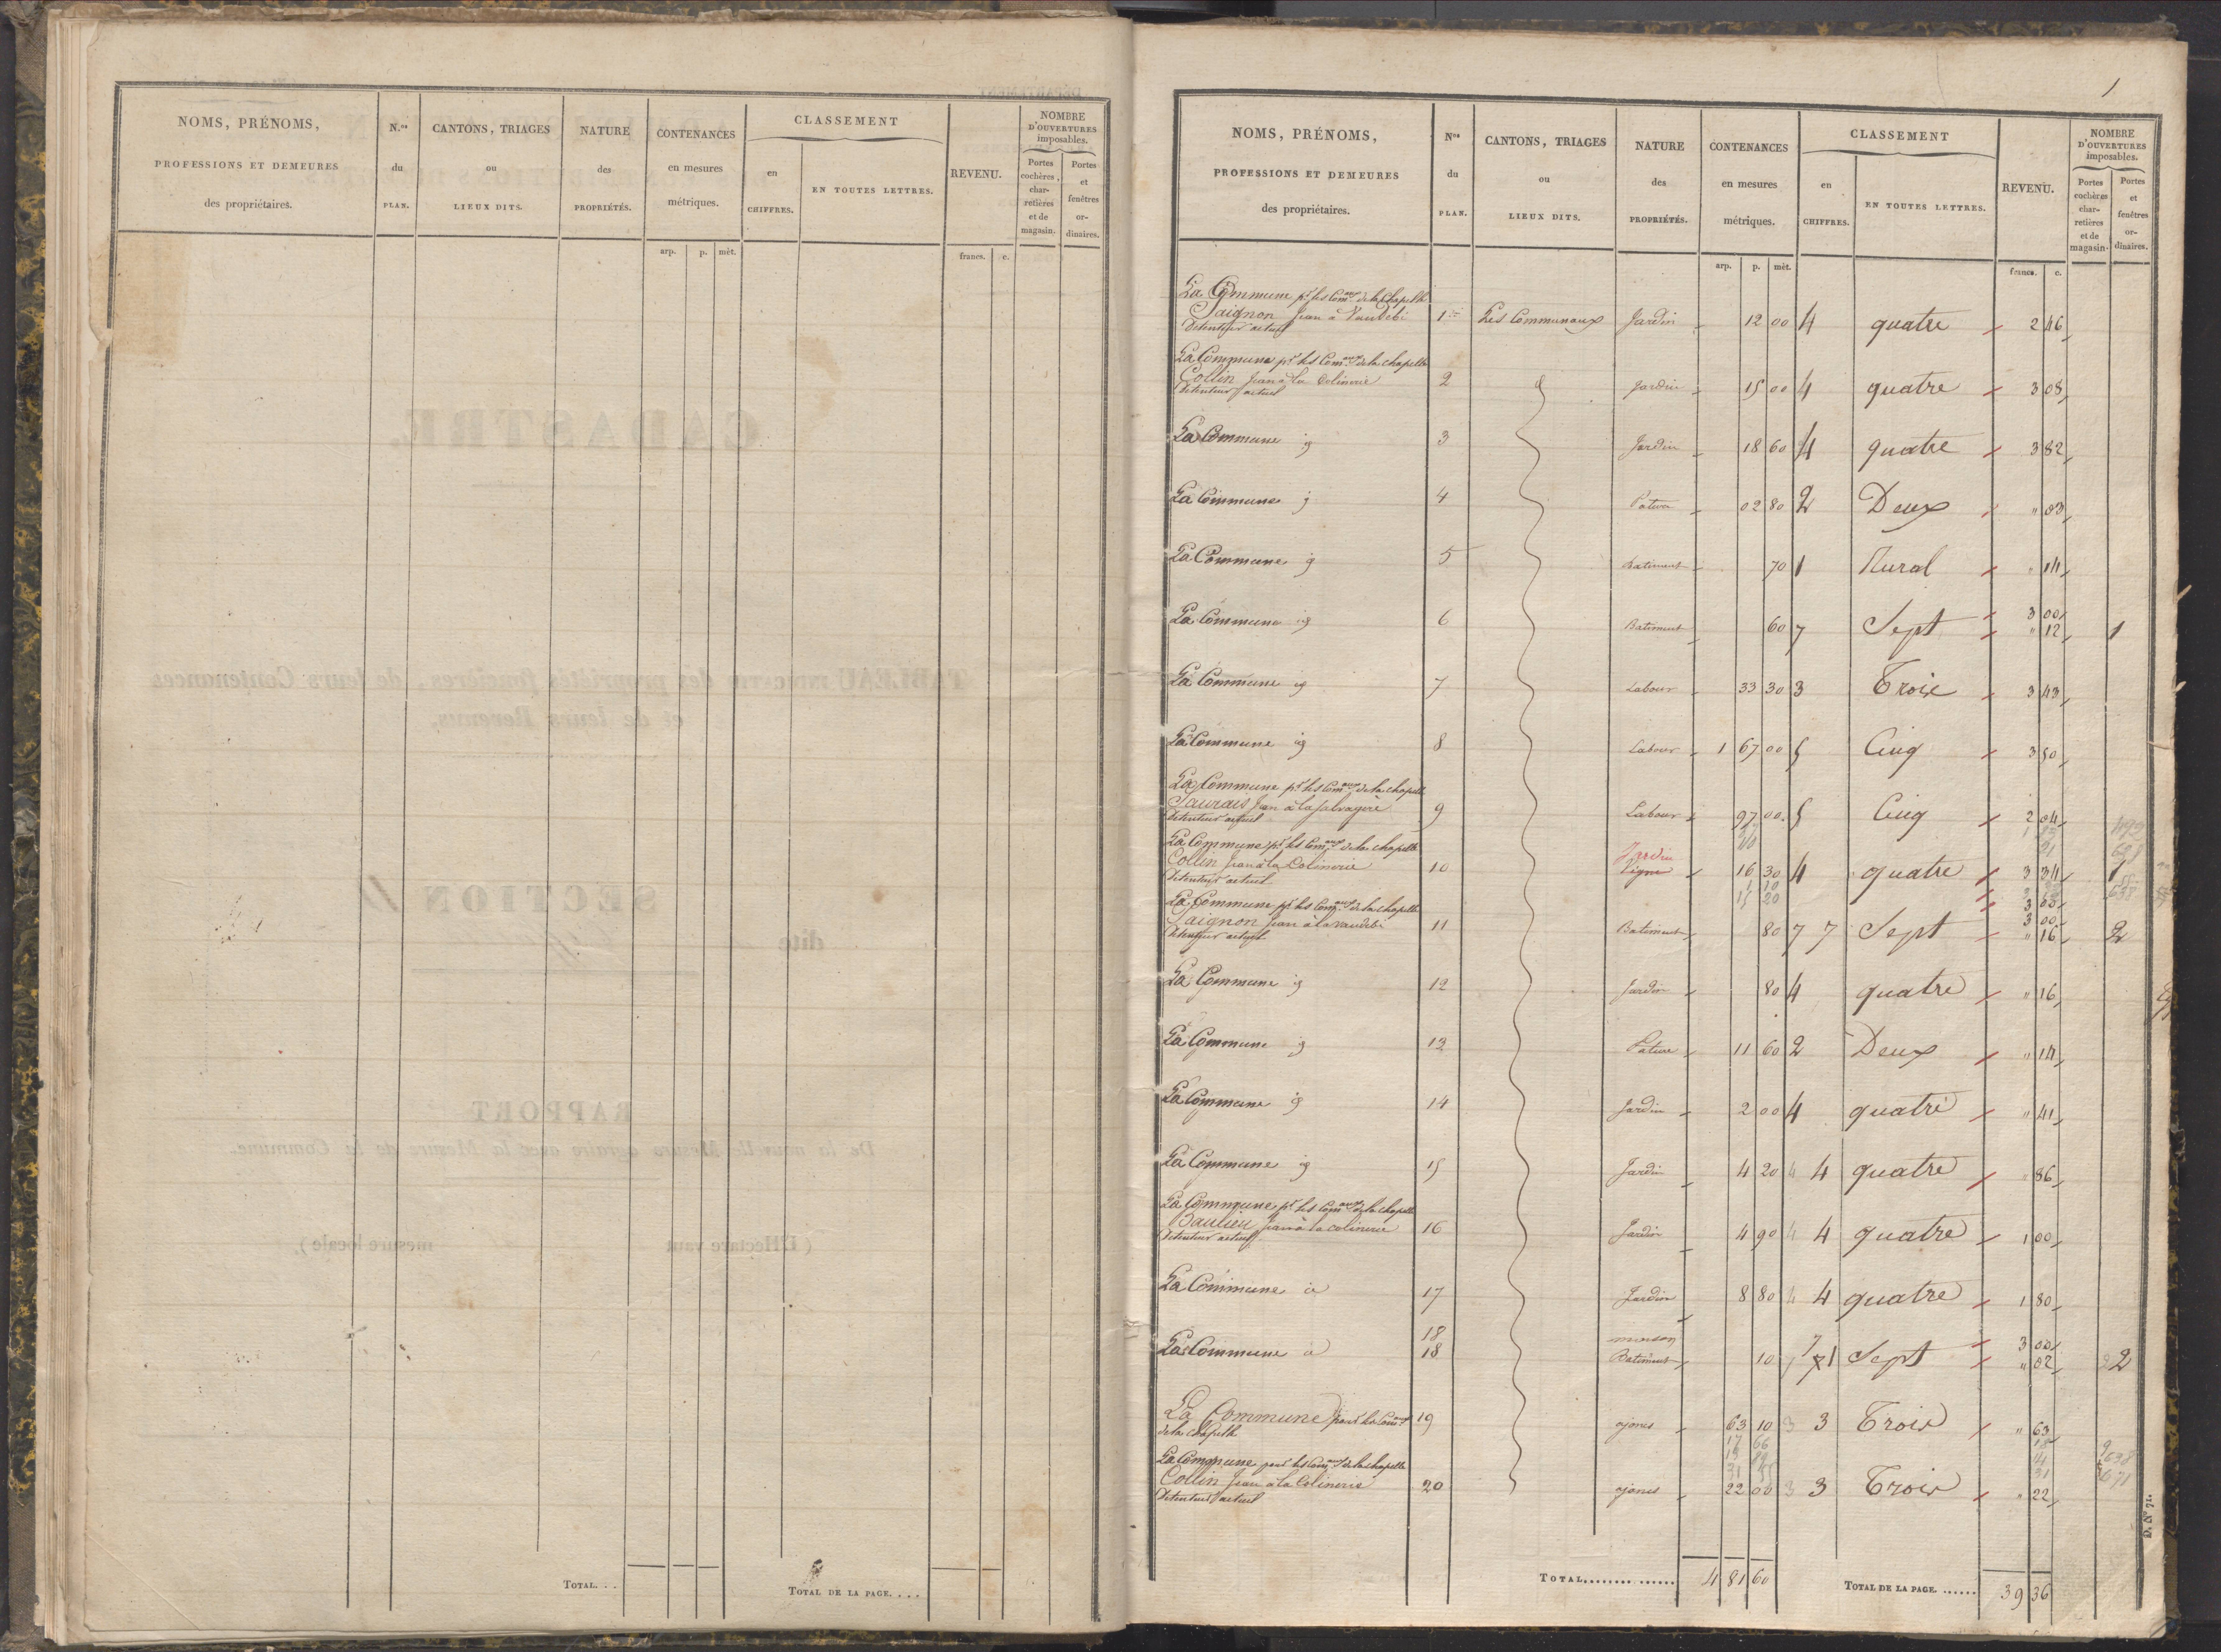 NOMS, PRÉNOMS,
PROFESSIONS ET DEMEURES
des propriétaires.
N.os
du
PLAN.
CANTONS, TRIAGES
ou
LIEUX DITS.
NATURE
des
PROPRIÉTÉS.
CONTENANCES
en mesures
métriques.
CLASSEMENT
en
CHIFFRES.
EN TOUTES LETTRES.
REVENU.
NOMBRE
D'OUVERTURES
imposables.
Portes
cochères,
char-
retières
et de
magasin.
Portes
et
fenêtres
or-
dinaires.
arp. p. mèt.
francs. c.
TOTAL. . .
TOTAL DE LA PAGE. . . .
1
NOMS, PRÉNOMS,
PROFESSIONS ET DEMEURES
des propriétaires.
Nos
du
PLAN.
CANTONS, TRIAGES
ou
LIEUX DITS.
NATURE
des
PROPRIÉTÉS.
CONTENANCES
en mesures
métriques.
CLASSEMENT
en
CHIFFRES.
EN TOUTES LETTRES.
REVENU.
NOMBRE
D'OUVERTURES
imposables.
Portes
cochères
char-
retières
et de
magasin.
Portes
et
fenêtres
or-
dinaires.
arp. p. mèt.
francs. c.
La Commune pr les Com.aux de la Chapelle
Saignon Jean à Vaudebi 1er Les Communaux Jardin 12 00 4 quatre 2 46
Detenteur actuel
La Commune pr les Com.aux de la chapelle
Collin Jean à la Colinerie 2 Jardin 15 00 4 quatre 3 08
Detenteur actuel
La Commune 3 Jardin 18 60 4 quatre 3 82
La Commune 4 Pature 02 80 2 Deux " 03
La Commune 5 Batiment 70 1 Rural " 14
La Commune 6 Batiment 60 7 Sept 3 00
" 12 1
La Commune 7 Labour 33 30 3 Trois 3 43
La Commune 8 Labour 1 67 00 5 Cinq 3 50
La Commune pr les Com.aux de la chapelle
Jean à la 9 Labour 97 00 5 Cinq 2 04
Detenteur actuel
La Commune pr les Com.aux de la chapelle
Jardin
Collin Jean à la Colinerie 10 Vigne 16 30 4 quatre 3 34 1
Detenteur actuel
15 20
La Commune pr les Com.aux de la chapelle
3 00
Saignon Jean à la Vaudebi 11 Batiment 80 7 7 Sept " 16 2
Detenteur actuel
La Commune 12 Jardin 80 4 quatre " 16
La Commune 13 Pature 11 60 2 Deux " 14
La Commune 14 Jardin 2 00 4 quatre " 41
La Commune 15 Jardin 4 20 4 4 quatre " 86
La Commune pr les Com.aux de la chapelle
Baulieu Jean à la colinerie 16 Jardin 4 90 4 4 quatre 1 00
Detenteur actuel
La Commune 17 Jardin 8 80 4 4 quatre 1 80
18 maison 7 3 00
La Commune 18 Batiment 10 1 Sept " 02 2
La Commune pour les Com.aux 19 ajoncs 63 10 3 3 Trois " 63
de la chapelle
La Commune pour les Com.aux de la chapelle
Collin Jean à la Colinerie 20 ajoncs 22 00 3 3 Trois " 22
Detenteur actuel
TOTAL............... 4 81 60
TOTAL DE LA PAGE. ...... 39 36
D. No 71.